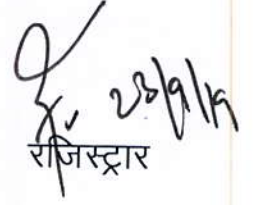 23/9/19
रजिस्ट्रार